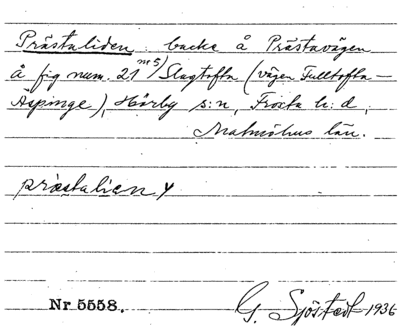 Prästaliden : backe å Prästavägen
å fig num. 21 nr 5) Slagtofta (vägen Fulltofta –
Äspinge), Hörby s:n, Frosta h:d,
Malmöhus län.
præstalien
Nr 5558.
G. Sjöstedt 1936